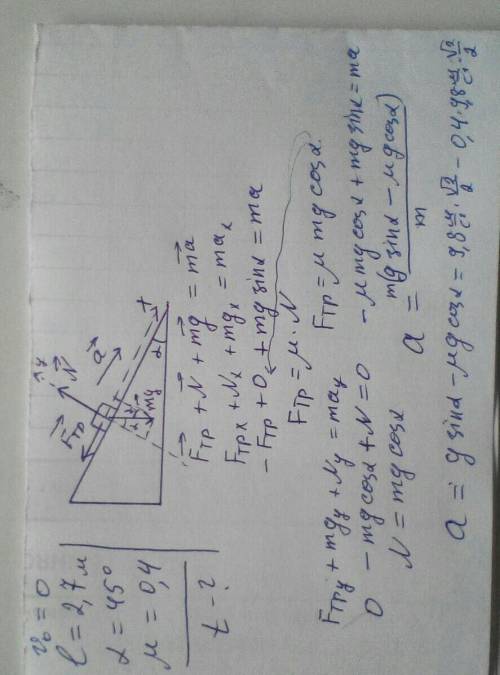 v₀ = 0
l = 2,7 м
α = 45°
μ = 0,4
t - ?
y
N
a
Fтр
x
α
mg
Fтр + N + mg = ma
Fтрx + Nx + mgx = max
- Fтр + 0 + mg sinα = ma
Fтр = μ · N
Fтрy + mgy + Ny = may
0 - mg cosα + N = 0
N = mg cosα
Fтр = μ mg cosα
- μ mg cosα + mg sinα = ma
a = m(g sinα - μ g cosα) / m
a = g sinα - μ g cosα = 9,8 м/с² · √2/2 - 0,4 · 9,8 м/с² · √2/2